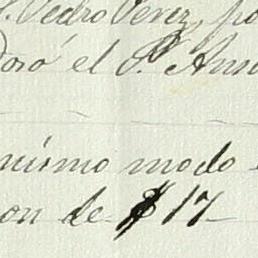 Pedro Perez, po
oró el P. Ann
mismo modo
on de $17